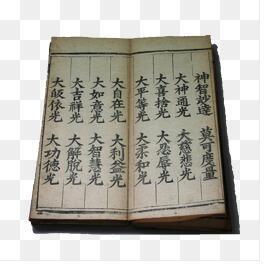 神智妙達 莫可度量
大神通光 大慈悲光
大喜捨光 大忍辱光
大平等光 大柔和光
大自在光 大利益光
大如意光 大智慧光
大吉祥光 大解脫光
大皈依光 大功德光